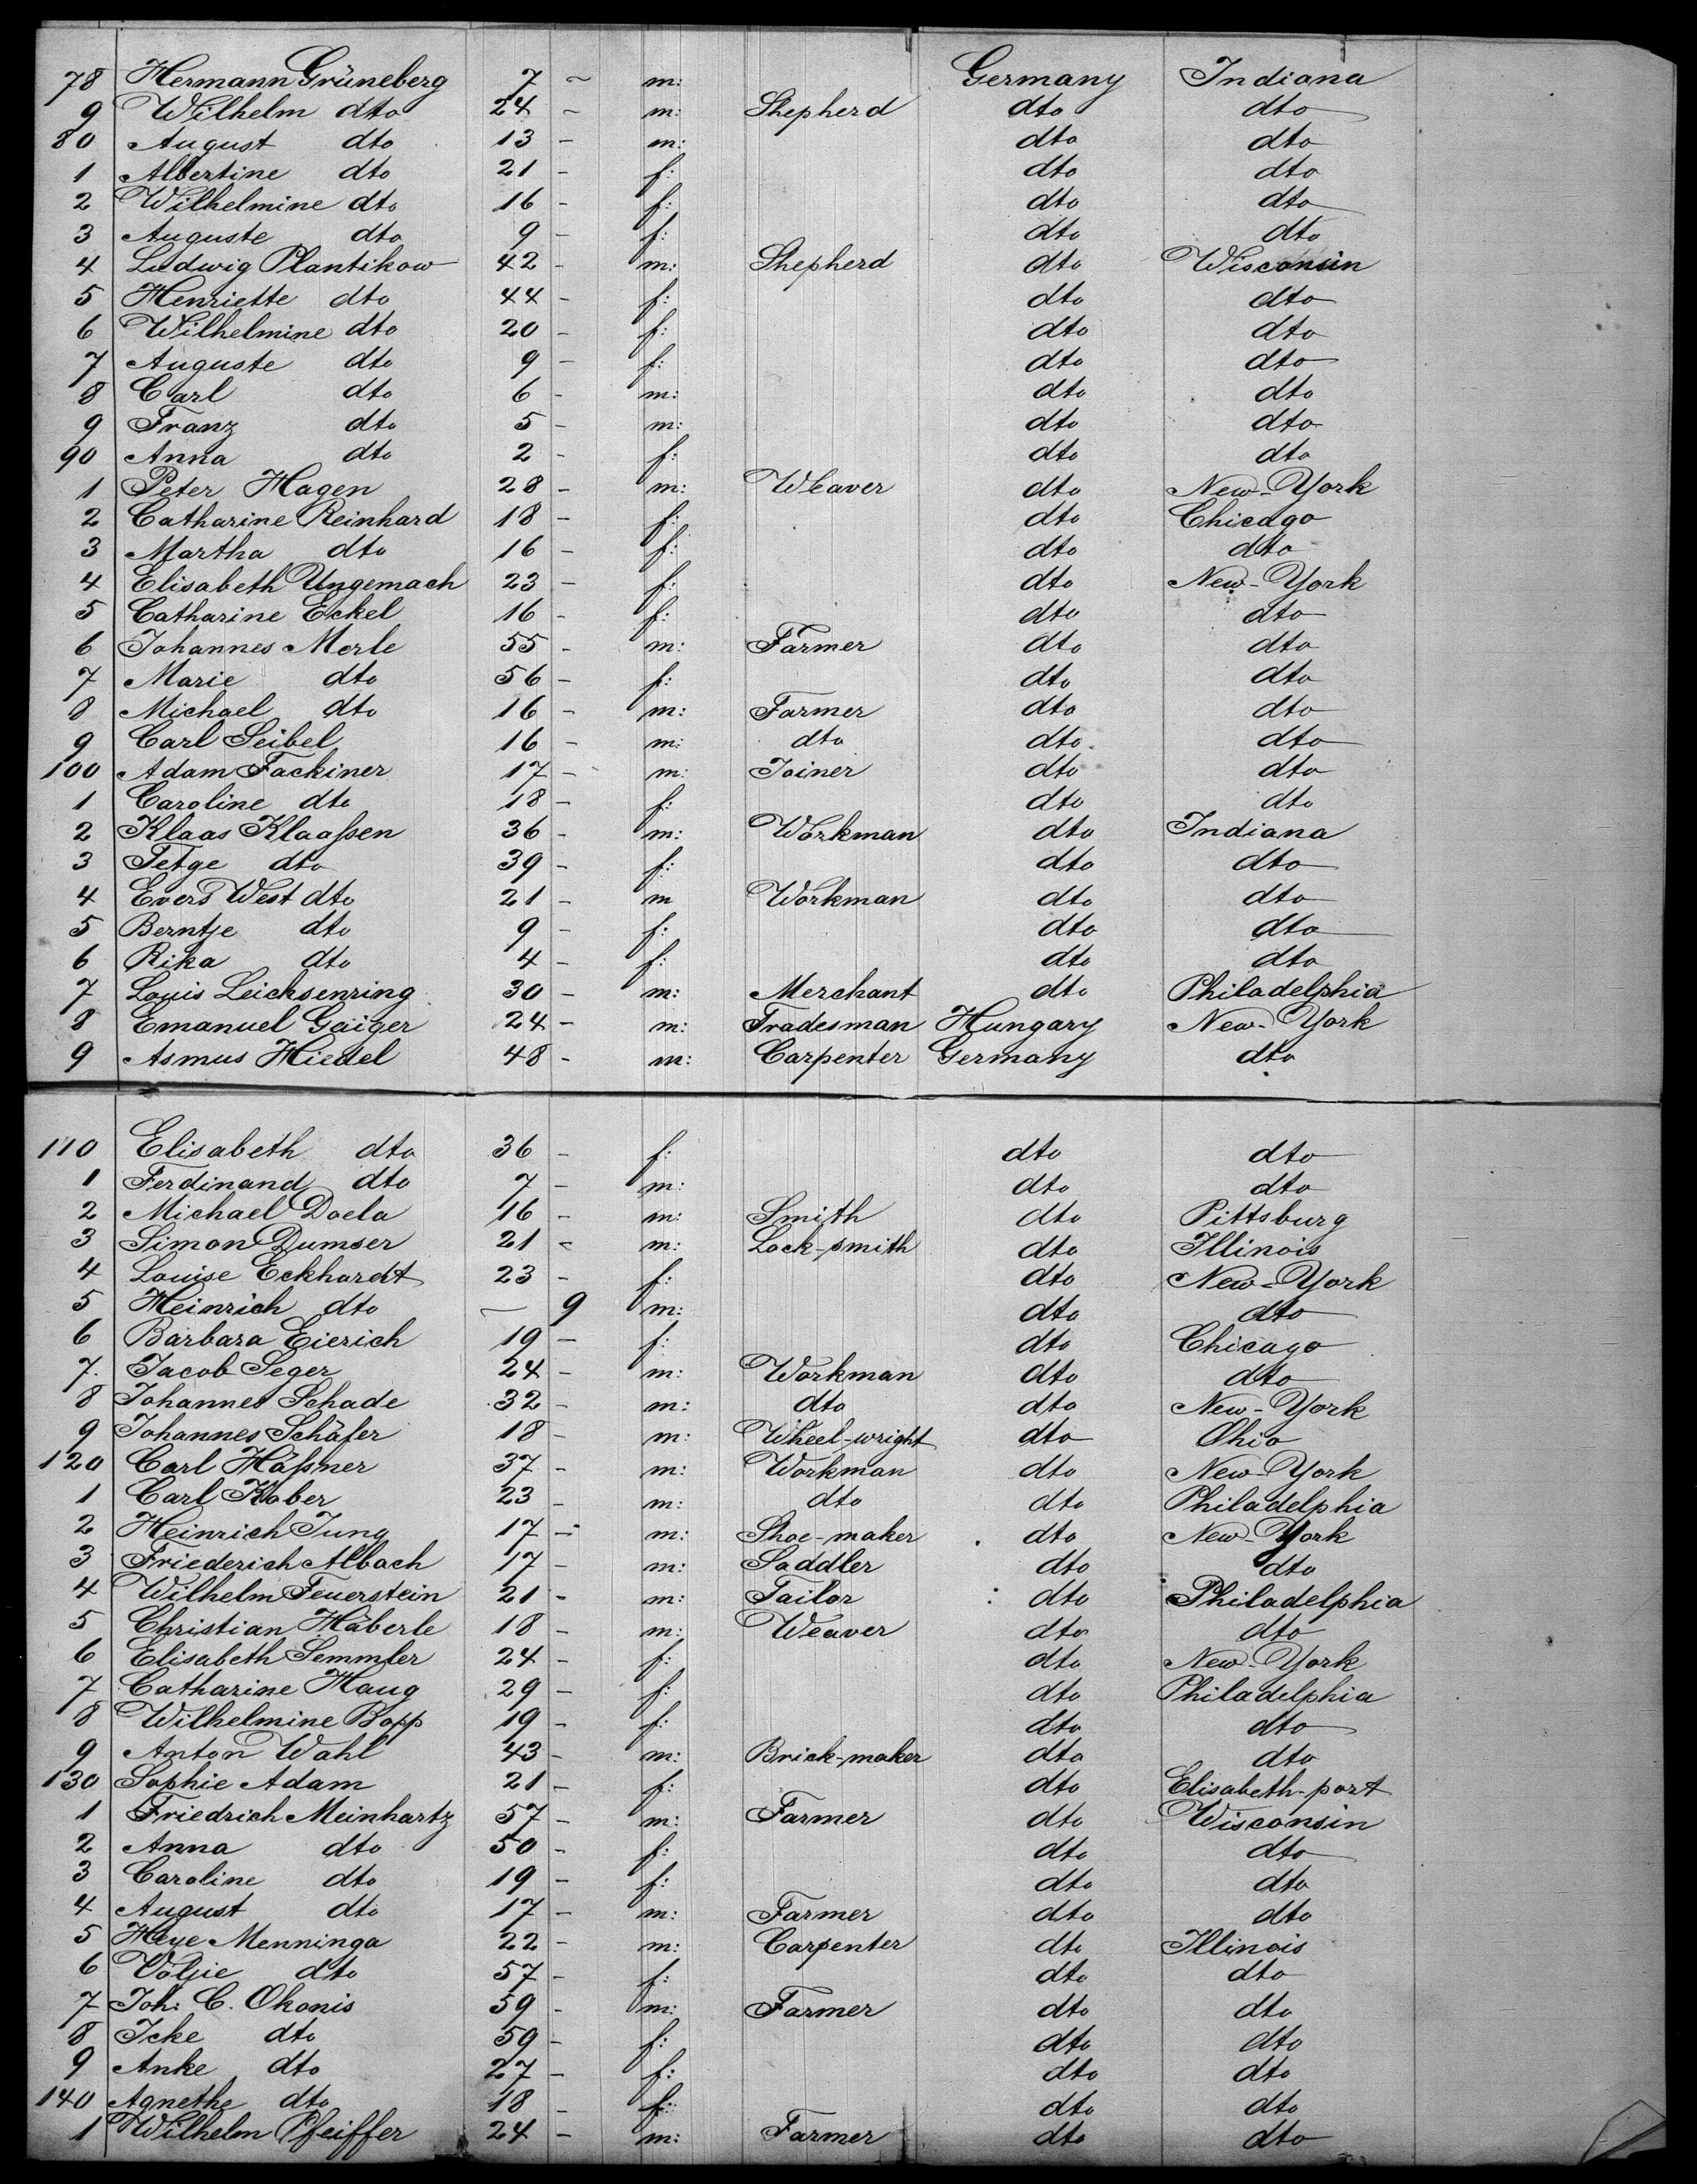 78 Hermann Grüneberg 7 ~ m: Germany Indiana
9 Wilhelm dto 24 ~ m: Shepherd dto dto
80 August dto 13 - m: dto dto
1 Albertine dto 21 - f: dto dto
2 Wilhelmine dto 16 - f: dto dto
3 Auguste dto 9 - f: dto dto
4 Ludwig Plantikow 42 - m: Shepherd dto Wisconsin
5 Henriette dto 44 - f: dto dto
6 Wilhelmine dto 20 - f: dto dto
7 Auguste dto 9 - f: dto dto
8 Carl dto 6 - m: dto dto
9 Franz dto 5 - m: dto dto
90 Anna dto 2 - f: dto dto
1 Peter Hagen 28 - m: Weaver dto New-York
2 Catharine Reinhard 18 - f: dto Chicago
3 Martha dto 16 - f: dto dto
4 Elisabeth Ungemach 23 - f: dto New-York
5 Catharine Eckel 16 - f: dto dto
6 Johannes Merle 55 - m: Farmer dto dto
7 Marie dto 56 - f: dto dto
8 Michael dto 16 - m: Farmer dto dto
9 Carl Seibel 16 - m: dto dto dto
100 Adam Fackiner 17 - m: Joiner dto dto
1 Caroline dto 18 - f: dto dto
2 Klaas Klaaßen 36 - m: Workman dto Indiana
3 Tetge dto 39 - f: dto dto
4 Evers West dto 21 - m Workman dto dto
5 Berntje dto 9 - f: dto dto
6 Rika dto 4 - f: dto dto
7 Louis Leichsenring 30 - m: Merchant dto Philadelphia
8 Emanuel Gaiger 24 - m: Tradesman Hungary New-York
9 Asmus Hiedel 48 - m: Carpenter Germany dto
110 Elisabeth dto 36 - f: dto dto
1 Ferdinand dto 7 - m: dto dto
2 Michael Doela 16 - m: Smith dto Pittsburg
3 Simon Dumser 21 - m: Lock-smith dto Illinois
4 Louise Eckhardt 23 - f: dto New-York
5 Heinrich dto — 9 m: dto dto
6 Barbara Eierich 19 - f: dto Chicago
7. Jacob Seger 24 - m: Workman dto dto
8 Johannes Schade 32 - m: dto dto New-York
9 Johannes Schäfer 18 - m: Wheel-wright dto Ohio
120 Carl Häßner 37 - m: Workman dto New-York
1 Carl Kober 23 - m: dto dto Philadelphia
2 Heinrich Jung 17 - m: Shoe-maker dto New-York
3 Friederich Albach 17 - m: Saddler dto dto
4 Wilhelm Feuerstein 21 - m: Tailor dto Philadelphia
5 Christian Häberle 18 - m: Weaver dto dto
6 Elisabeth Semmler 24 - f: dto New-York
7 Catharine Haug 29 - f: dto Philadelphia
8 Wilhelmine Bopp 19 - f: dto dto
9 Anton Wahl 43 - m: Brick-maker dto dto
130 Sophie Adam 21 - f: dto Elisabeth-port
1 Friedrich Meinhartz 57 - m: Farmer dto Wisconsin
2 Anna dto 50 - f: dto dto
3 Caroline dto 19 - f: dto dto
4 August dto 17 - m: Farmer dto dto
5 Heye Menninga 22 - m: Carpenter dto Illinois
6 dto 57 - f: dto dto
7 Joh: C. Okonis 59 - m: Farmer dto dto
8 Icke dto 59 - f: dto dto
9 Anke dto 27 - f: dto dto
140 Agnethe dto 18 - f: dto dto
1 Wilhelm Pfeiffer 24 - m: Farmer dto dto